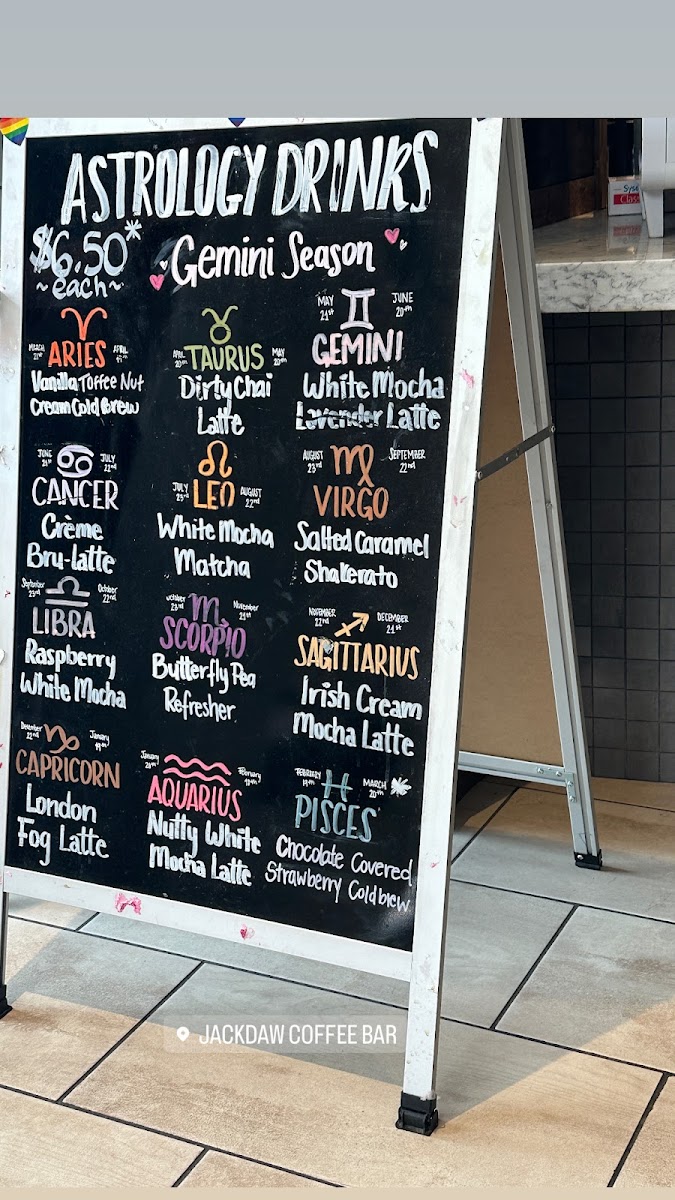 ASTROLOGY DRINKS
$6.50*
~each~
Gemini Season
MARCH 21st ARIES APRIL 19th
Vanilla Toffee Nut
Cream Cold Brew
APRIL 20th TAURUS MAY 20th
Dirty Chai
Latte
MAY 21st JUNE 20th
GEMINI
White Mocha
Lavender Latte
JUNE 21st JULY 22nd
CANCER
Crème
Bru-latte
JULY 23rd LEO AUGUST 22nd
White Mocha
Matcha
AUGUST 23rd SEPTEMBER 22nd
VIRGO
Salted Caramel
Shakerato
September 23rd October 22nd
LIBRA
Raspberry
White Mocha
October 23rd November 21st
SCORPIO
Butterfly Pea
Refresher
NOVEMBER 22nd DECEMBER 21st
SAGITTARIUS
Irish Cream
Mocha Latte
December 22nd January 19th
CAPRICORN
London
Fog Latte
January 20th February 18th
AQUARIUS
Nutty White
Mocha Latte
FEBRUARY 19th MARCH 20th
PISCES
Chocolate Covered
Strawberry Coldbrew
JACKDAW COFFEE BAR